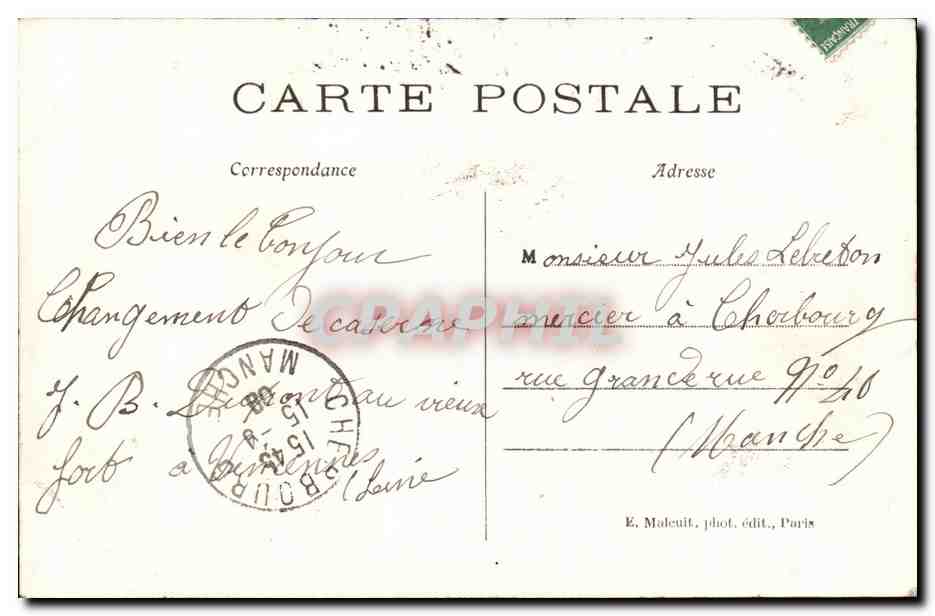 FRANÇAISE
CARTE POSTALE
Correspondance
Bien le bonjour
Changement De caserne
J. B. au vieux
fort a Vincennes
(Seine
Adresse
Monsieur Jules Lebreton
mercier à Cherbourg
rue grande rue No 40
(Manche)
CHERBOURG
MANCHE
15 45
15 - 9
08
CPAPHIL
E. Malcuit, phot. édit., Paris